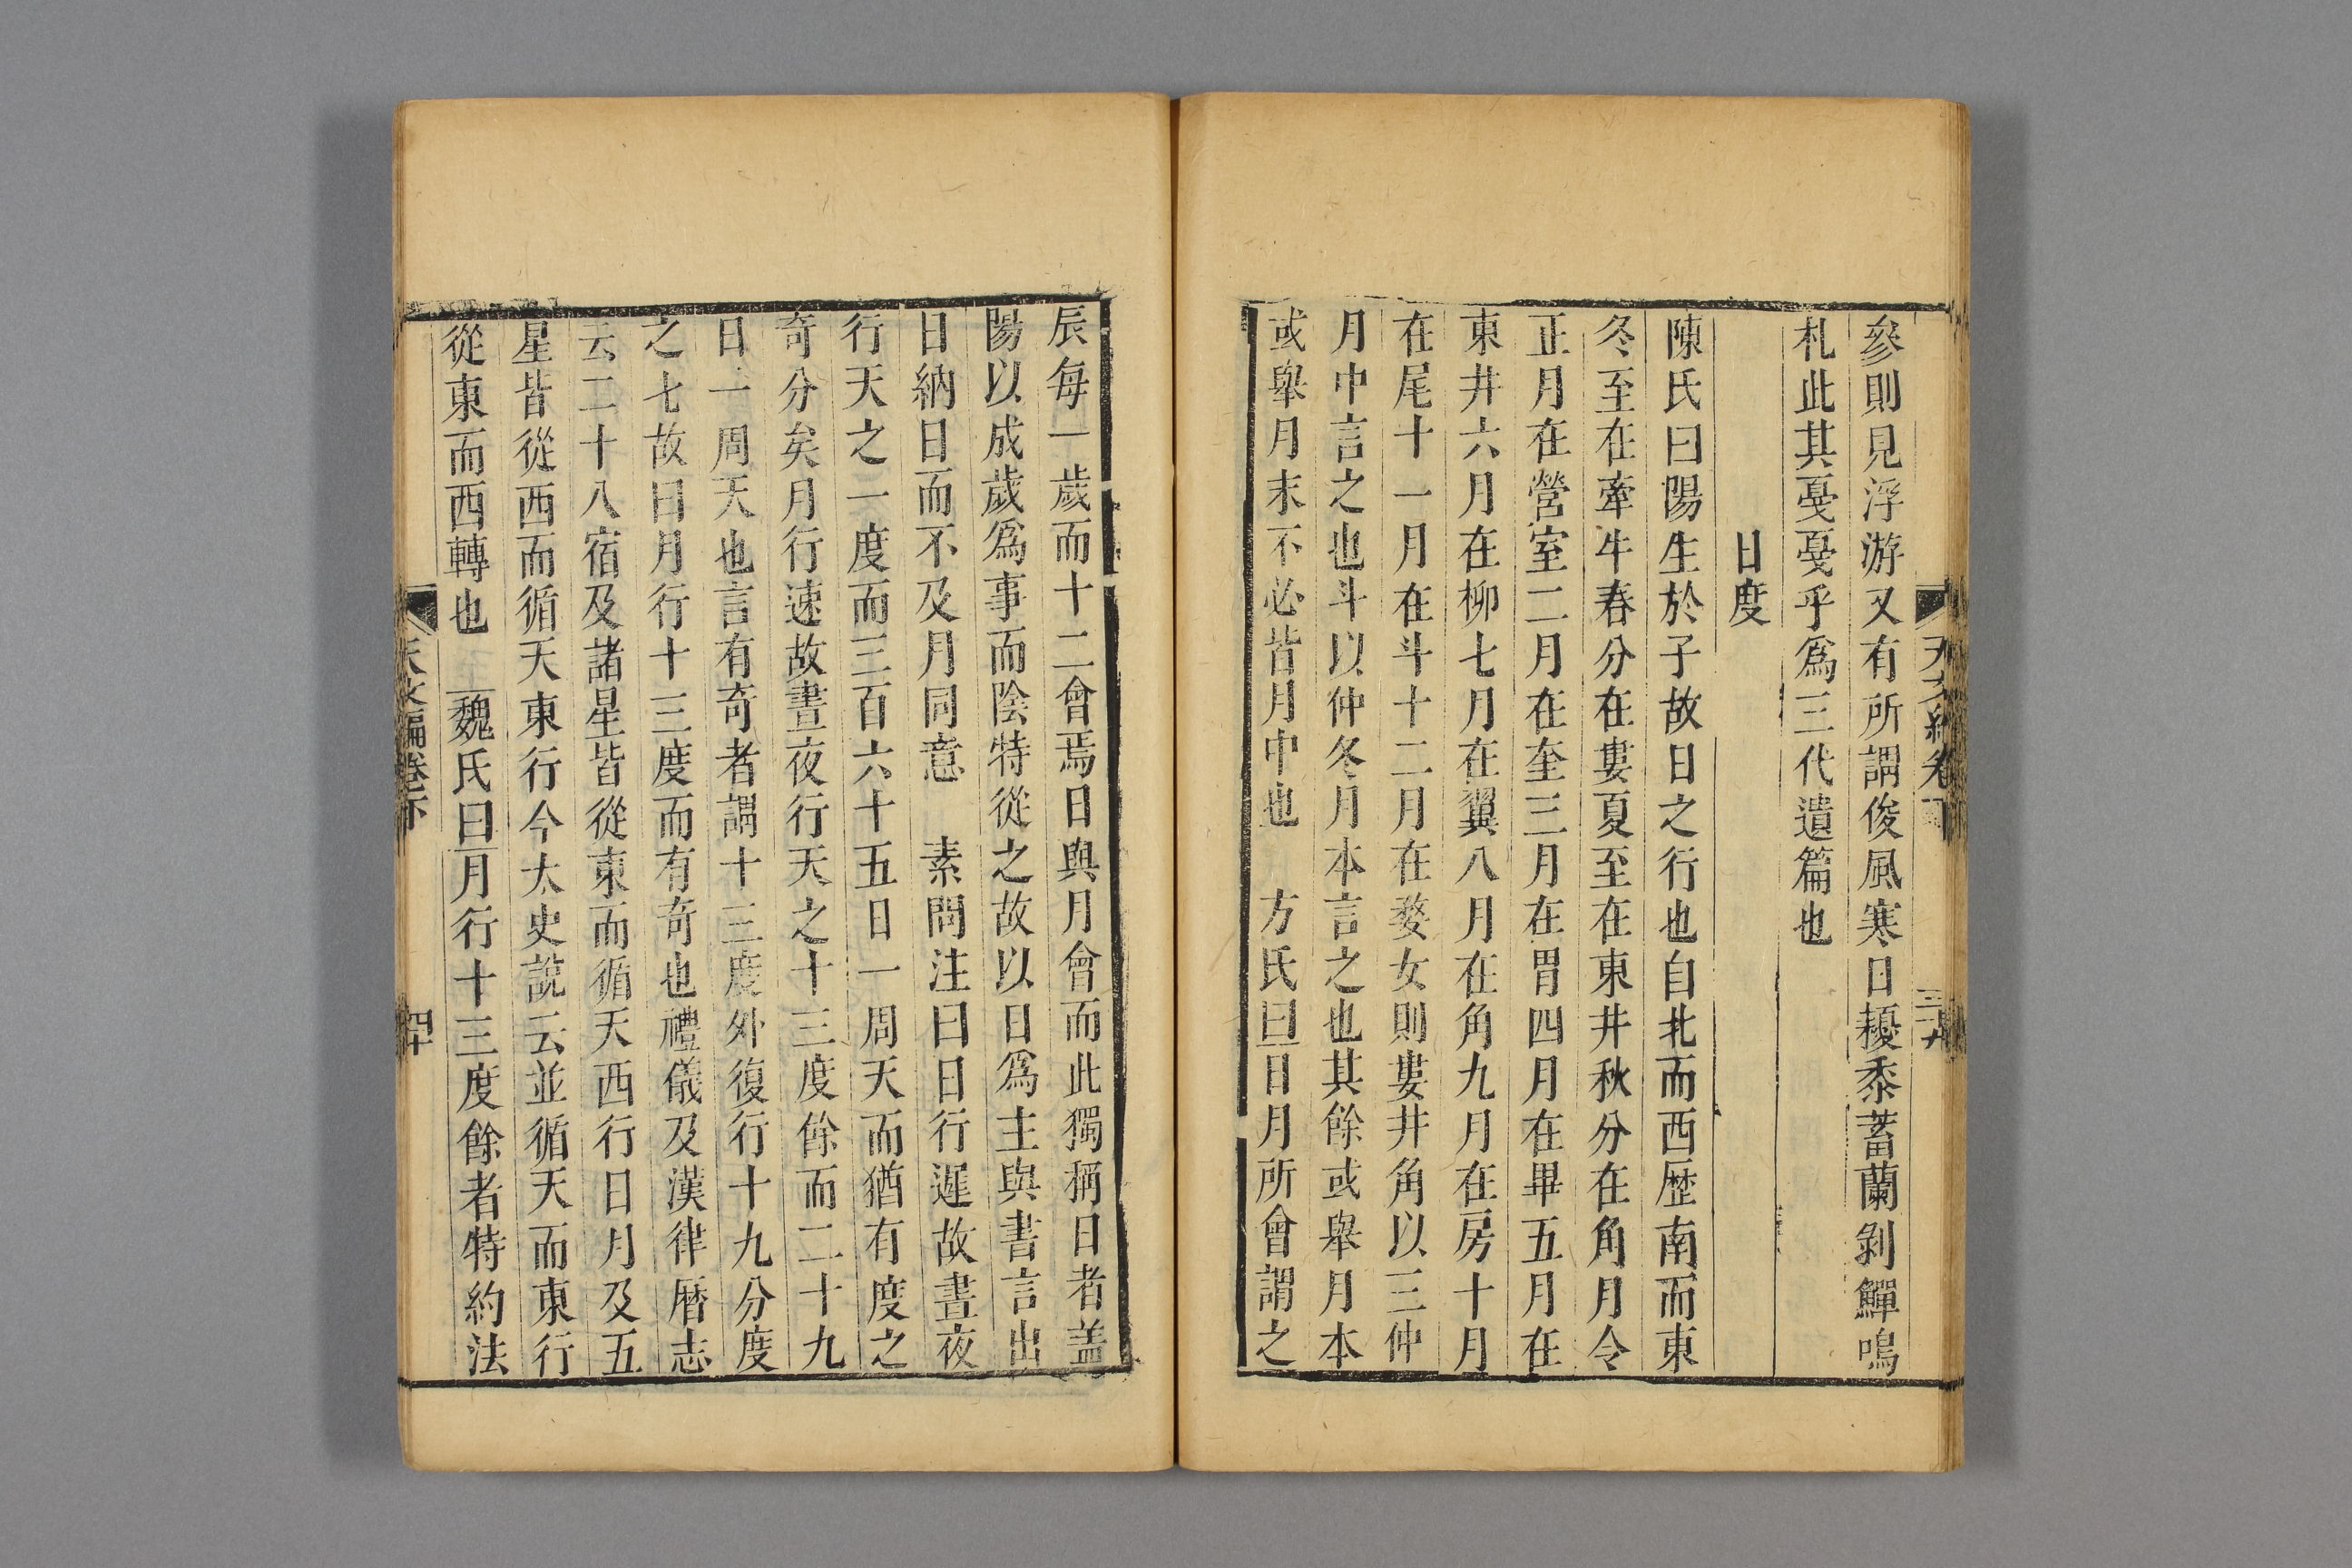 參則見浮游又有所謂俊風寒日擾黍蓄蘭剝鱓鳴
札此其戞戞乎爲三代遺篇也
日度
陳氏曰陽生於子故日之行也自北而西歷南而東
冬至在牽牛春分在婁夏至在東井秋分在角月令
正月在營室二月在奎三月在胃四月在畢五月在
東井六月在柳七月在翼八月在角九月在房十月
在尾十一月在斗十二月在婺女則婁井角以三仲
月中言之也斗以仲冬月本言之也其餘或舉月本
或舉月末不必皆月中也 方氏曰日月所會謂之
天文編卷下 三十九
辰每一歲而十二會焉日與月會而此獨稱日者盖
陽以成歲爲事而陰特從之故以日爲主與書言出
日納日而不及月同意 素問注曰日行遲故晝夜
行天之一度而三百六十五日一周天而猶有度之
奇分矣月行速故晝夜行天之十三度餘而二十九
日一周天也言有奇者謂十三度外復行十九分度
之七故曰月行十三度而有奇也禮儀及漢律曆志
云二十八宿及諸星皆從東而循天西行日月及五
星皆從西而循天東行今太史說云並循天而東行
從東而西轉也 魏氏曰月行十三度餘者特約法
天文編卷下 四十